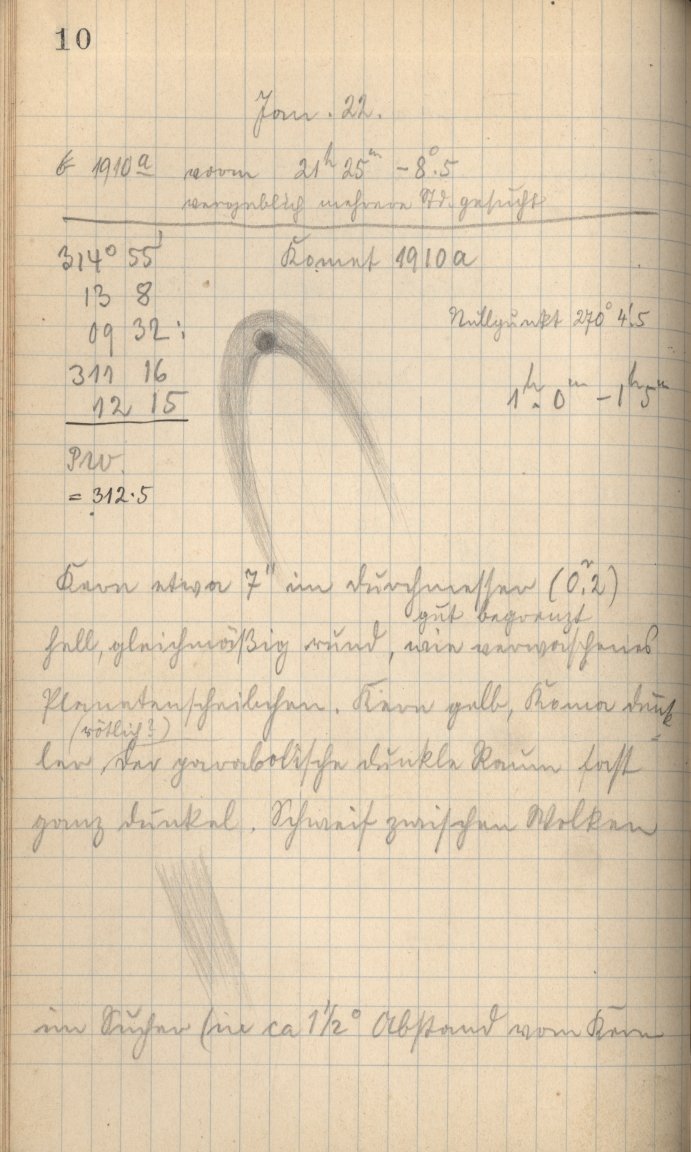 10
Jan. 22.
1910a vorm 21h 25m – 8°.5
vergeblich mehrere Std. gesucht
314° 55' Komet 1910a
13 8
09 32: Nullpunkt 270° 4'.5
311 16
12 15 1h. 0m – 1h 5m
PW.
= 312.5
Kern etwa 7" im Durchmesser (0.2)
gut begrenzt
hell, gleichmäßig rund, wie verwaschenes
Planetenscheibchen. Kern gelb, Koma dunk-
(rötlich?)
ler, der parabolische dunkle Raum fast
ganz dunkel. Schweif zwischen Wolken
im Sucher (in ca 1 1/2° Abstand vom Kern